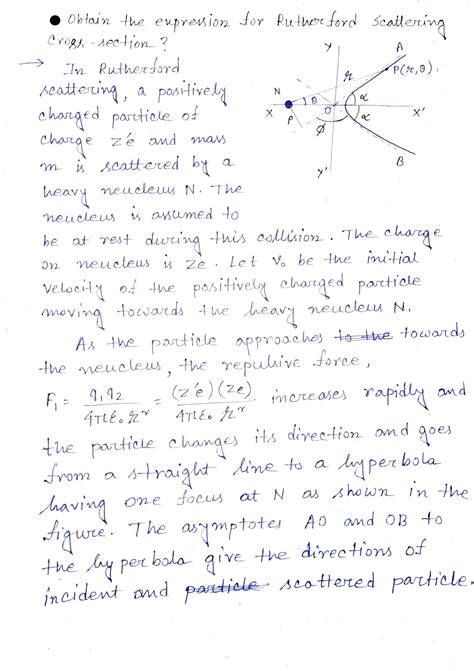 ● Obtain the expression for Rutherford Scattering
Cross-section?
→ In Rutherford
scattering, a positively
charged particle of
charge z'e and mass
m is scattered by a
heavy neucleus N. The
neucleus is assumed to
be at rest during this collision. The charge
on neucleus is ze. Let v₀ be the initial
velocity of the positively charged particle
moving towards the heavy neucleus N.
As the particle approaches to the towards
the neucleus, the repulsive force,
F₁ = q₁q₂ / 4πε₀ r² = (z'e)(ze) / 4πε₀ r² increases rapidly and
the particle changes its direction and goes
from a straight line to a hyperbola
having one focus at N as shown in the
figure. The asymptotes AO and OB to
the hyperbola give the directions of
incident and particle scattered particle.
Y
A
P(r,θ)
r
N
θ
O
α
α
X
X'
P
φ
Y'
B